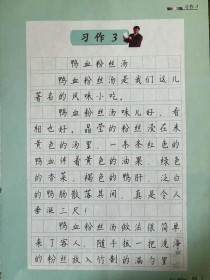 习作3
鸭血粉丝汤
鸭血粉丝汤是我们这儿
著名的风味小吃。
鸭血粉丝汤味儿好，看
相也好。晶莹的粉丝浸在米
黄色的汤里，一条条红色的鸭
血伴着黄色的油果，绿色
的香菜，褐色的鸭肝，泛白
的鸭肠散落其间，真是令人
垂涎三尺！
鸭血粉丝汤做法很简单。
来了客人，随手抜一把洗净
的粉丝放入竹制的漏勺里